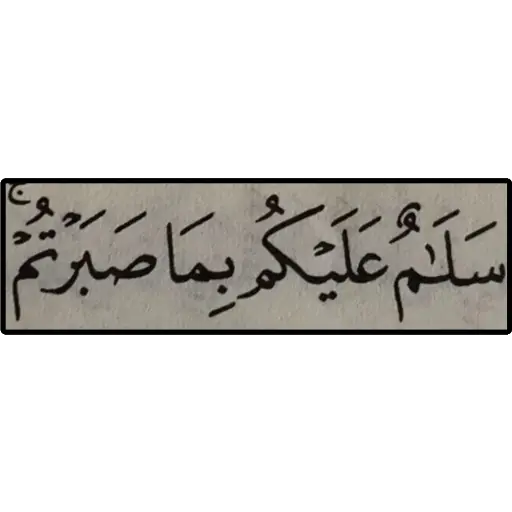 سَلَٰمٌ عَلَيۡكُم بِمَا صَبَرۡتُمۡۚ